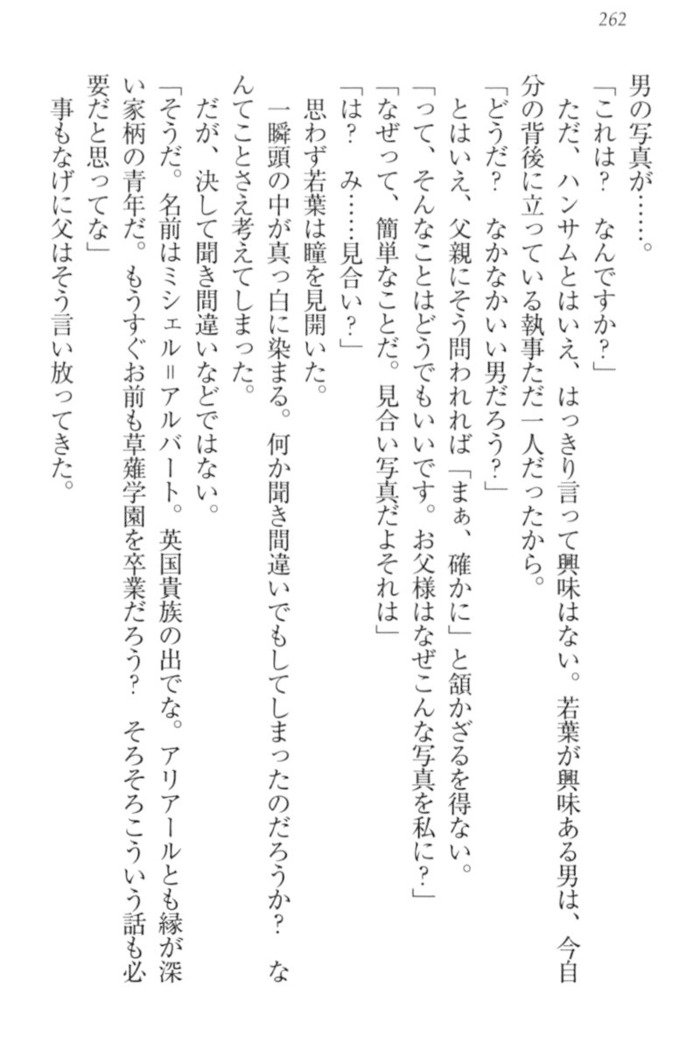 262
男の写真が……。
「これは？　なんですか？」
　ただ、ハンサムとはいえ、はっきり言って興味はない。若葉が興味ある男は、今自
分の背後に立っている執事ただ一人だったから。
「どうだ？　なかなかいい男だろう？」
　とはいえ、父親にそう問われれば「まぁ、確かに」と頷かざるを得ない。
「って、そんなことはどうでもいいです。お父様はなぜこんな写真を私に？」
「なぜって、簡単なことだ。見合い写真だよそれは」
「は？　み……見合い？」
　思わず若葉は瞳を見開いた。
　一瞬頭の中が真っ白に染まる。何か聞き間違いでもしてしまったのだろうか？　な
んてことさえ考えてしまった。
　だが、決して聞き間違いなどではない。
「そうだ。名前はミシェル＝アルバート。英国貴族の出でな。アリアールとも縁が深
い家柄の青年だ。もうすぐお前も草薙学園を卒業だろう？　そろそろこういう話も必
要だと思ってな」
　事もなげに父はそう言い放ってきた。